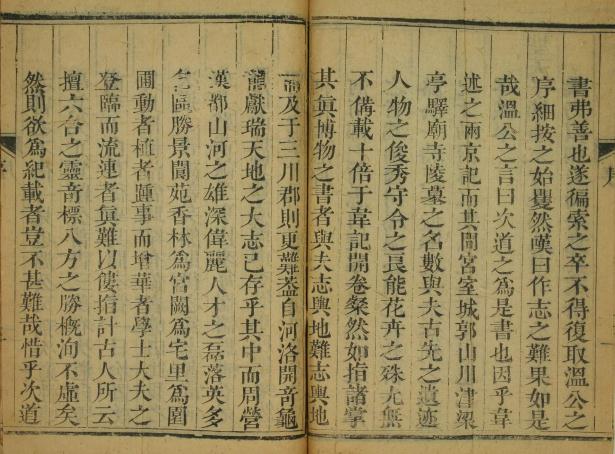 書弗善也遂徧索之卒不得復取溫公之
序細按之始矍然嘆曰作志之難果如是
哉溫公之言曰次道之爲是書也因乎韋
述之兩京記而其間宮室城郭山川津梁
亭驛廟寺陵墓之名數與夫古先之遺迹
人物之俊秀守令之良能花卉之殊尤無
不備載十倍于韋記開卷粲然如指諸掌
其眞博物之書者與夫志輿地難志輿地
而及于三川郡則更難葢自河洛開竒龜
龍獻瑞天地之大志已存乎其中而周營
漢都山河之雄深偉麗人才之磊落英多
名區勝景閬苑香林爲宮闕爲宅里爲園
圃動者植者踵事而增華者學士大夫之
登臨而流連者眞難以僂指計古人所云
擅六合之靈竒標八方之勝槪洵不虛矣
然則欲爲紀載者豈不甚難哉惜乎次道
序